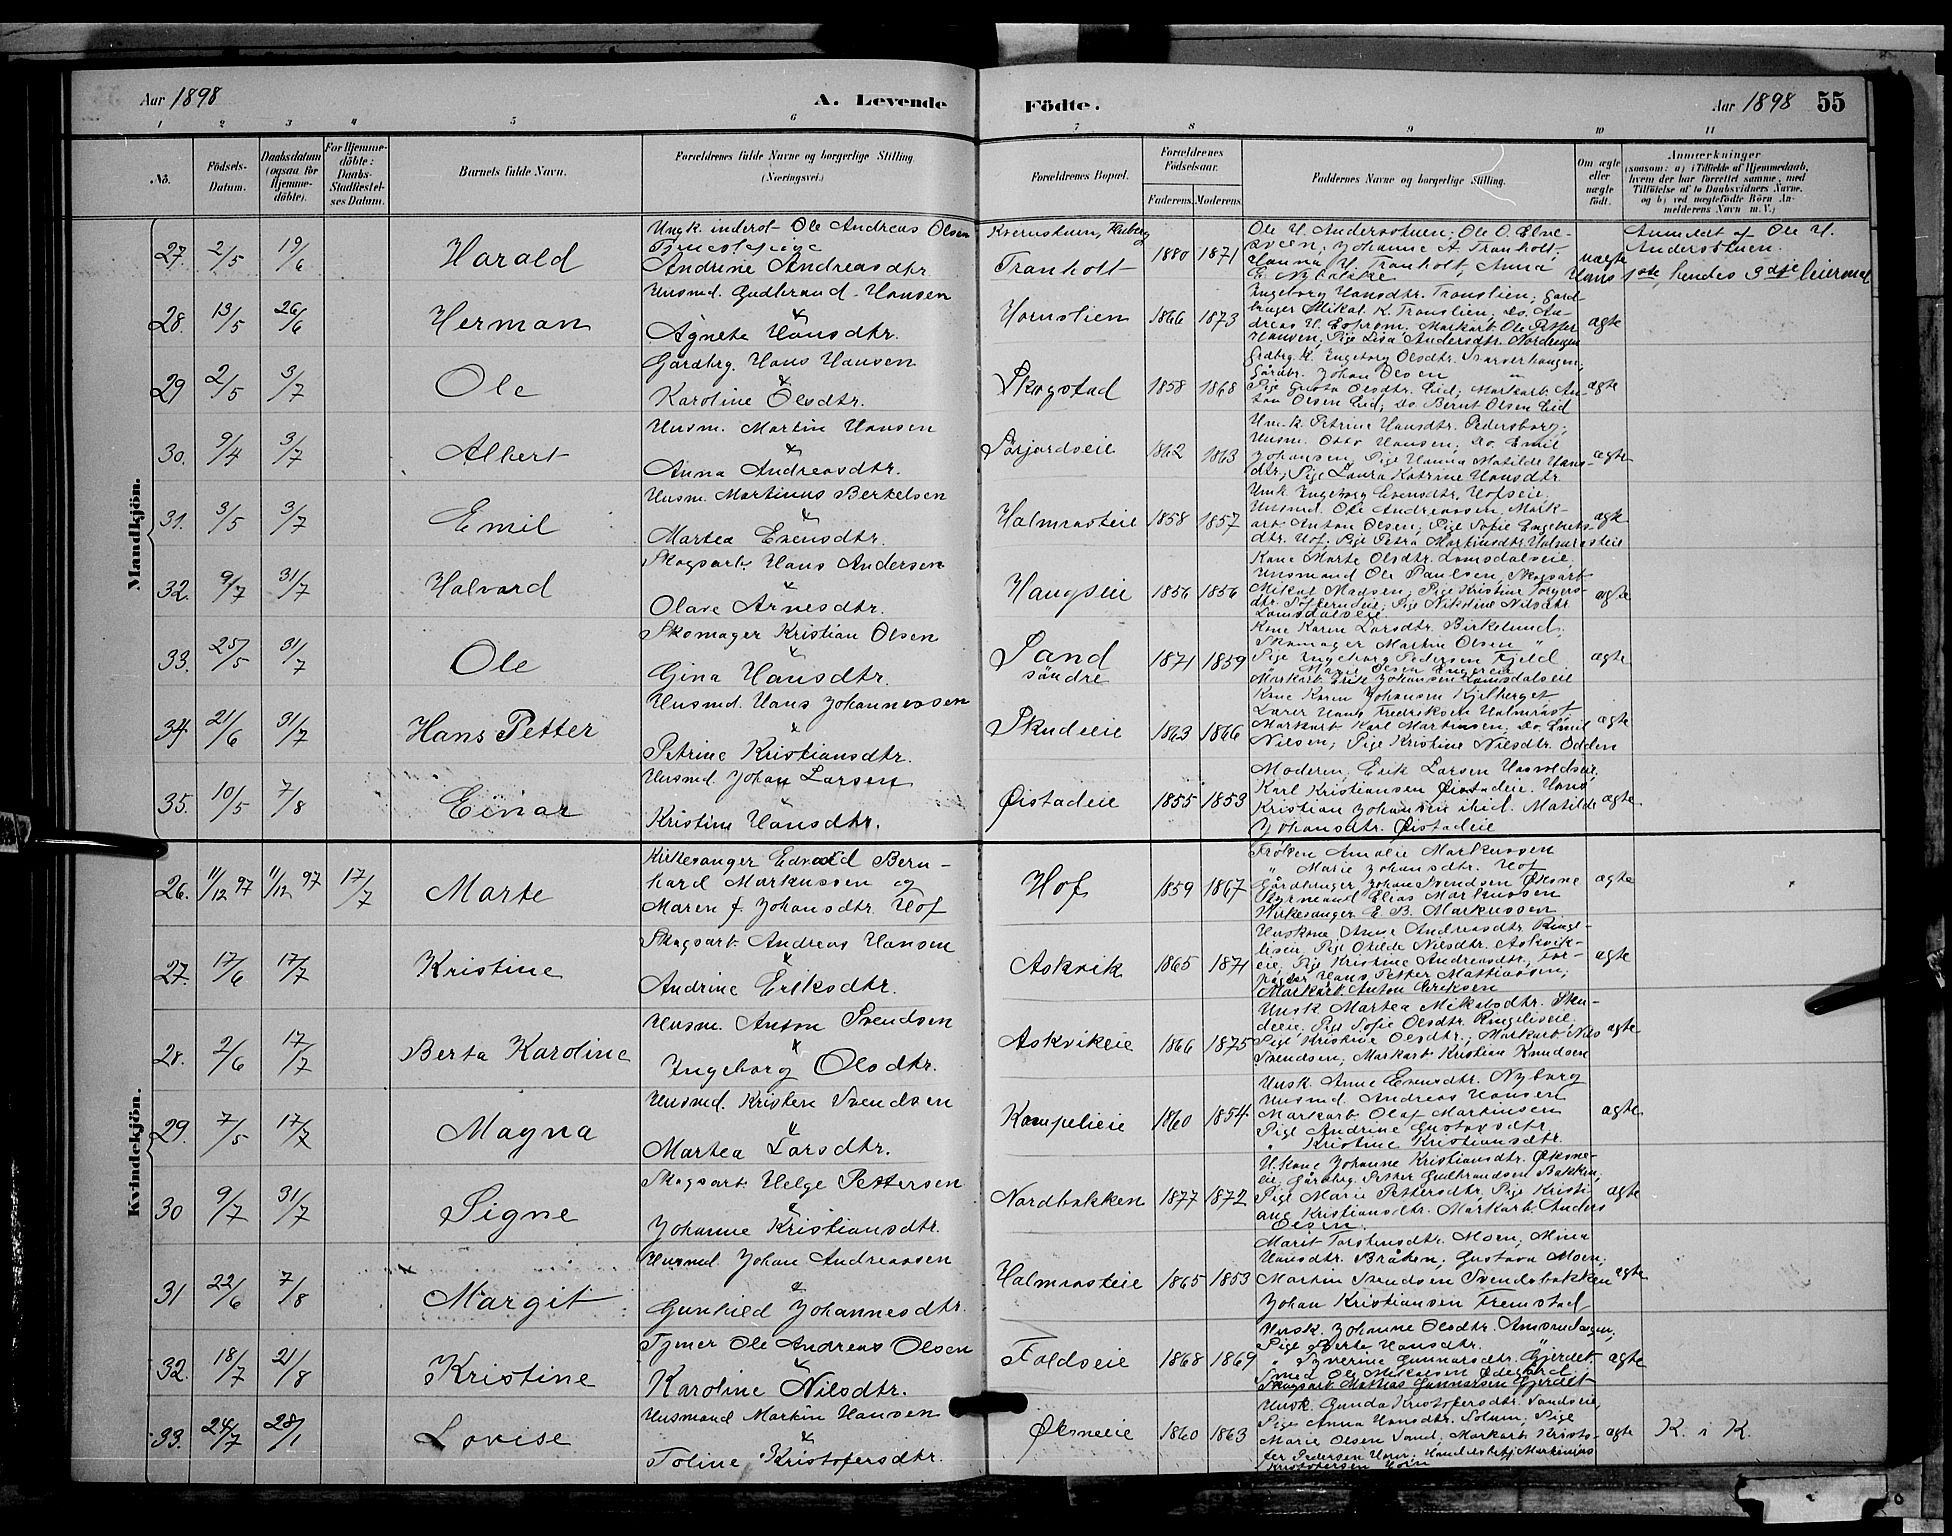 Aar 1898
A. Levende
Födte.
Aar 1898 55
1 2 3 4 5 6 7 8 9 10 11
No.
Födsels-Datum.
Daabsdatum (ogsaa for Hjemme-döbte).
For Hjemme-döbte: Daabs-Stadfæstel-ses Datum.
Barnets fulde Navn.
Forældrenes fulde Navne og borgerlige Stilling. (Næringsvei.)
Forældrenes Bopæl.
Forældrenes Födselsaar.
Faderens. Moderens.
Faddernes Navne og borgerlige Stilling.
Om ægte eller uægte födt.
Anmærkninger
(saasom: a) i Tilfælde af Hjemmedaab,
hvem der har forrettet samme, med
Tilföielse af to Daabsvidners Navne,
og b) ved uægtefödte Börn An-
melderens Navn m. V.)
Mandkjön.
27. 2/5 19/6 Harald
Ungk. inderst Ole Andreas Olsen
Andrine Andreasdtr.
Tranholt 1880 1871
Ole H. Anderstuen; Ole O.
Johanne A. Tranholt,
Hanna H. Tranholt, Anna
uægte
Anmeldt af Ole H.
Anderstuen.
Hans 1ste, hendes 3dje leiermaal
28. 13/5 26/6 Herman
Husmd. Gudbrand Hansen
&
Agnete Hansdtr.
Hornslien 1866 1873
Ingeborg Hansdtr. Tronslien; Gard-
bruger Mikal K. Tronslien; Do. An-
dreas H. Markarb. Ole Petter
Hansen, Pige Lisa Andersdtr. Nordengen
ægte
29 2/5 3/7 Ole
Gårdbrg. Hans Hansen
&
Karoline Olsdtr.
Skogstad 1858 1868
Grdbrg. k. Ingeborg Olsdtr.
Gårdbr. Johan Olsen
Pige Olsdtr. Eid; Markarb. An-
ton Olsen Eid; Do. Bernt Olsen Eid
ægte
30. 9/4 3/7 Albert
Husm. Martin Hansen
&
Anna Andreasdtr.
Sørjordseie 1862 1863
Hsm. k. Petrine Hansdtr. Pedersborg;
Husm. Otto Hansen; Do. Emil
Johansen, Pige Hanna Matilde Hans-
dtr; Pige Laura Katrine Hansdtr.
ægte
31. 3/5 3/7 Emil
Husm. Martinus Berkelsen
&
Martea Evensdtr.
Halmrasteie 1858 1857
Hmk. Ingeborg Evensdtr. Hofseie.
Husmd. Ole Andreassen, Mark-
arb. Anton Olsen; Pige Sofie Engebrets-
dtr. Hof, Pige Petra Martinsdtr. Halmrasteie
ægte
32. 9/7 31/7 Halvard
Skogsarb. Hans Andersen
&
Olave Arnesdtr.
Haugseie 1856 1856
Kone Marte Olsdtr. Lomsdalseie,
Husmand Ole Paulsen, Skogsarb
Mikal Madsen; Pige Kristine Torgers-
dtr. Pige Nikoline Nilsdtr.
Lomsdalseie
ægte
33. 25/5 31/7 Ole
Skomager Kristian Olsen
&
Gina Hansdtr.
Sand
søndre 1871 1859
Kone Karen Larsdtr. Birkelund;
Skomager Martin Olsen "
Pige Ingeborg Pedersen Fjeld
" Marie Olsen
Markarb. Erik Johansen Lomsdalseie
ægte
34. 21/6 31/7 Hans Petter
Husmd. Hans Johannessen
&
Petrine Kristiansdtr.
Skudeie 1863 1866
Kone Karen Johansen Kjelberget
Lærer Hans Fredriksen Halmrast
Markarb. Karl Martinsen; Do. Emil
Nilsen; Pige Kristine Nilsdtr. Odden
ægte
35. 10/5 7/8 Einar
Husmd. Johan Larsen
Kristine Hansdtr.
Øistadeie 1855 1853
Moderen, Erik Larsen
Karl Kristiansen Øistadeie. Hans
Kristian Johansen ibid. Matilde
Johansdtr. Øistadeie
ægte
Kvindekjön.
26. 11/12 97 11/12 97 17/7 Marte
Kirkesanger Edvard Bern-
hard Markussen og
Maren f. Johansdtr. Hof
Hof 1859 1867
Frøken Amalie Markussen
" Marie Johansdtr. Hof
Gårdbruger Johan Svendsen Øksne
Styrmand Elias Markussen
Kirkesanger E. B. Markussen
ægte
27. 17/6 17/7 Kristine
Skogsarb. Andreas Hansen
&
Andrine Eriksdtr.
Askvik 1865 1871
Huskone Anne Andreasdtr. Ringe-
lieie, Pige Otilde Nilsdtr. Askvik-
eie; Pige Kristine Andreasdtr., For-
pagter Hans Petter Mathiassen;
Markarb. Anton Eriksen
ægte
28. 2/6 17/7 Berta Karoline
Husm. Anton Svendsen
&
Ingeborg Olsdtr.
Askvikeie 1866 1875
Husk. Martea Mikalsdtr. Sku-
deie; Pige Sofie Olsdtr. Ringelieie.
Pige Kristine Olsdtr.; Markarb. Nils
Svendsen; Markarb. Kristian Knudsen
ægte
29. 7/5 17/7 Magna
Husmd. Kristen Svendsen
&
Martea Larsdtr.
Kampelieie 1860 1854.
Husk. Anne Evensdtr. Nyborg
Husmd. Andreas Hansen
Markarb. Olaf Martinsen
Pige Andrine Gustavsdtr.
" Kristine Kristiansdtr.
ægte
30 9/7 31/7 Signe
Skogsarb. Helge Pettersen
&
Johanne Kristiansdtr.
Nordbakken 1877 1872
H.kone Johanne Kristiansdtr. Øksne-
eie, Gårdbrg. Petter Gulbrandsen Bakken,
Pige Marie Pettersdtr, Pige Kristi-
ane Kristiansdtr. Markarb. Anders
Olsen.
ægte
31 22/6 7/8 Margit
Husmd. Johan Andreassen
&
Gunhild Johannesdtr.
Halmrasteie 1865 1853
Marit Torstensdtr. Moen, Mina
Hansdtr. Bråten, Gustava Moen;
Martin Svendsen Svendsbakken
Johan Kristiansen Fremstad
ægte
32. 18/7 21/8 Kristine
Tjener Ole Andreas Olsen
&
Karoline Nilsdtr.
Foldseie 1868 1869
Husk. Johanne Olsdtr. Amsrudengen;
Pige Berte Hansdtr.
" Synerine Gunnarsdtr. Gjerdet,
Smed Ole Mikalsen Ødegård
Skogsarb. Mathias Gunnarsen Gjerdet
ægte
33. 24/7 28/1 Lovise
Husmand Martin Hansen
&
Toline Kristofersdtr.
Øksneeie 1860 1863
Husk. Gunda Kristofersdtr. Sandseie,
Pige Anna Hansdtr. Solum; Pige
Marie Olsen Sand, Markarb. Kristo-
fer Pedersen Horn, Handelsbetj. Markinius
Kristofersen Horn
ægte
K. i K.